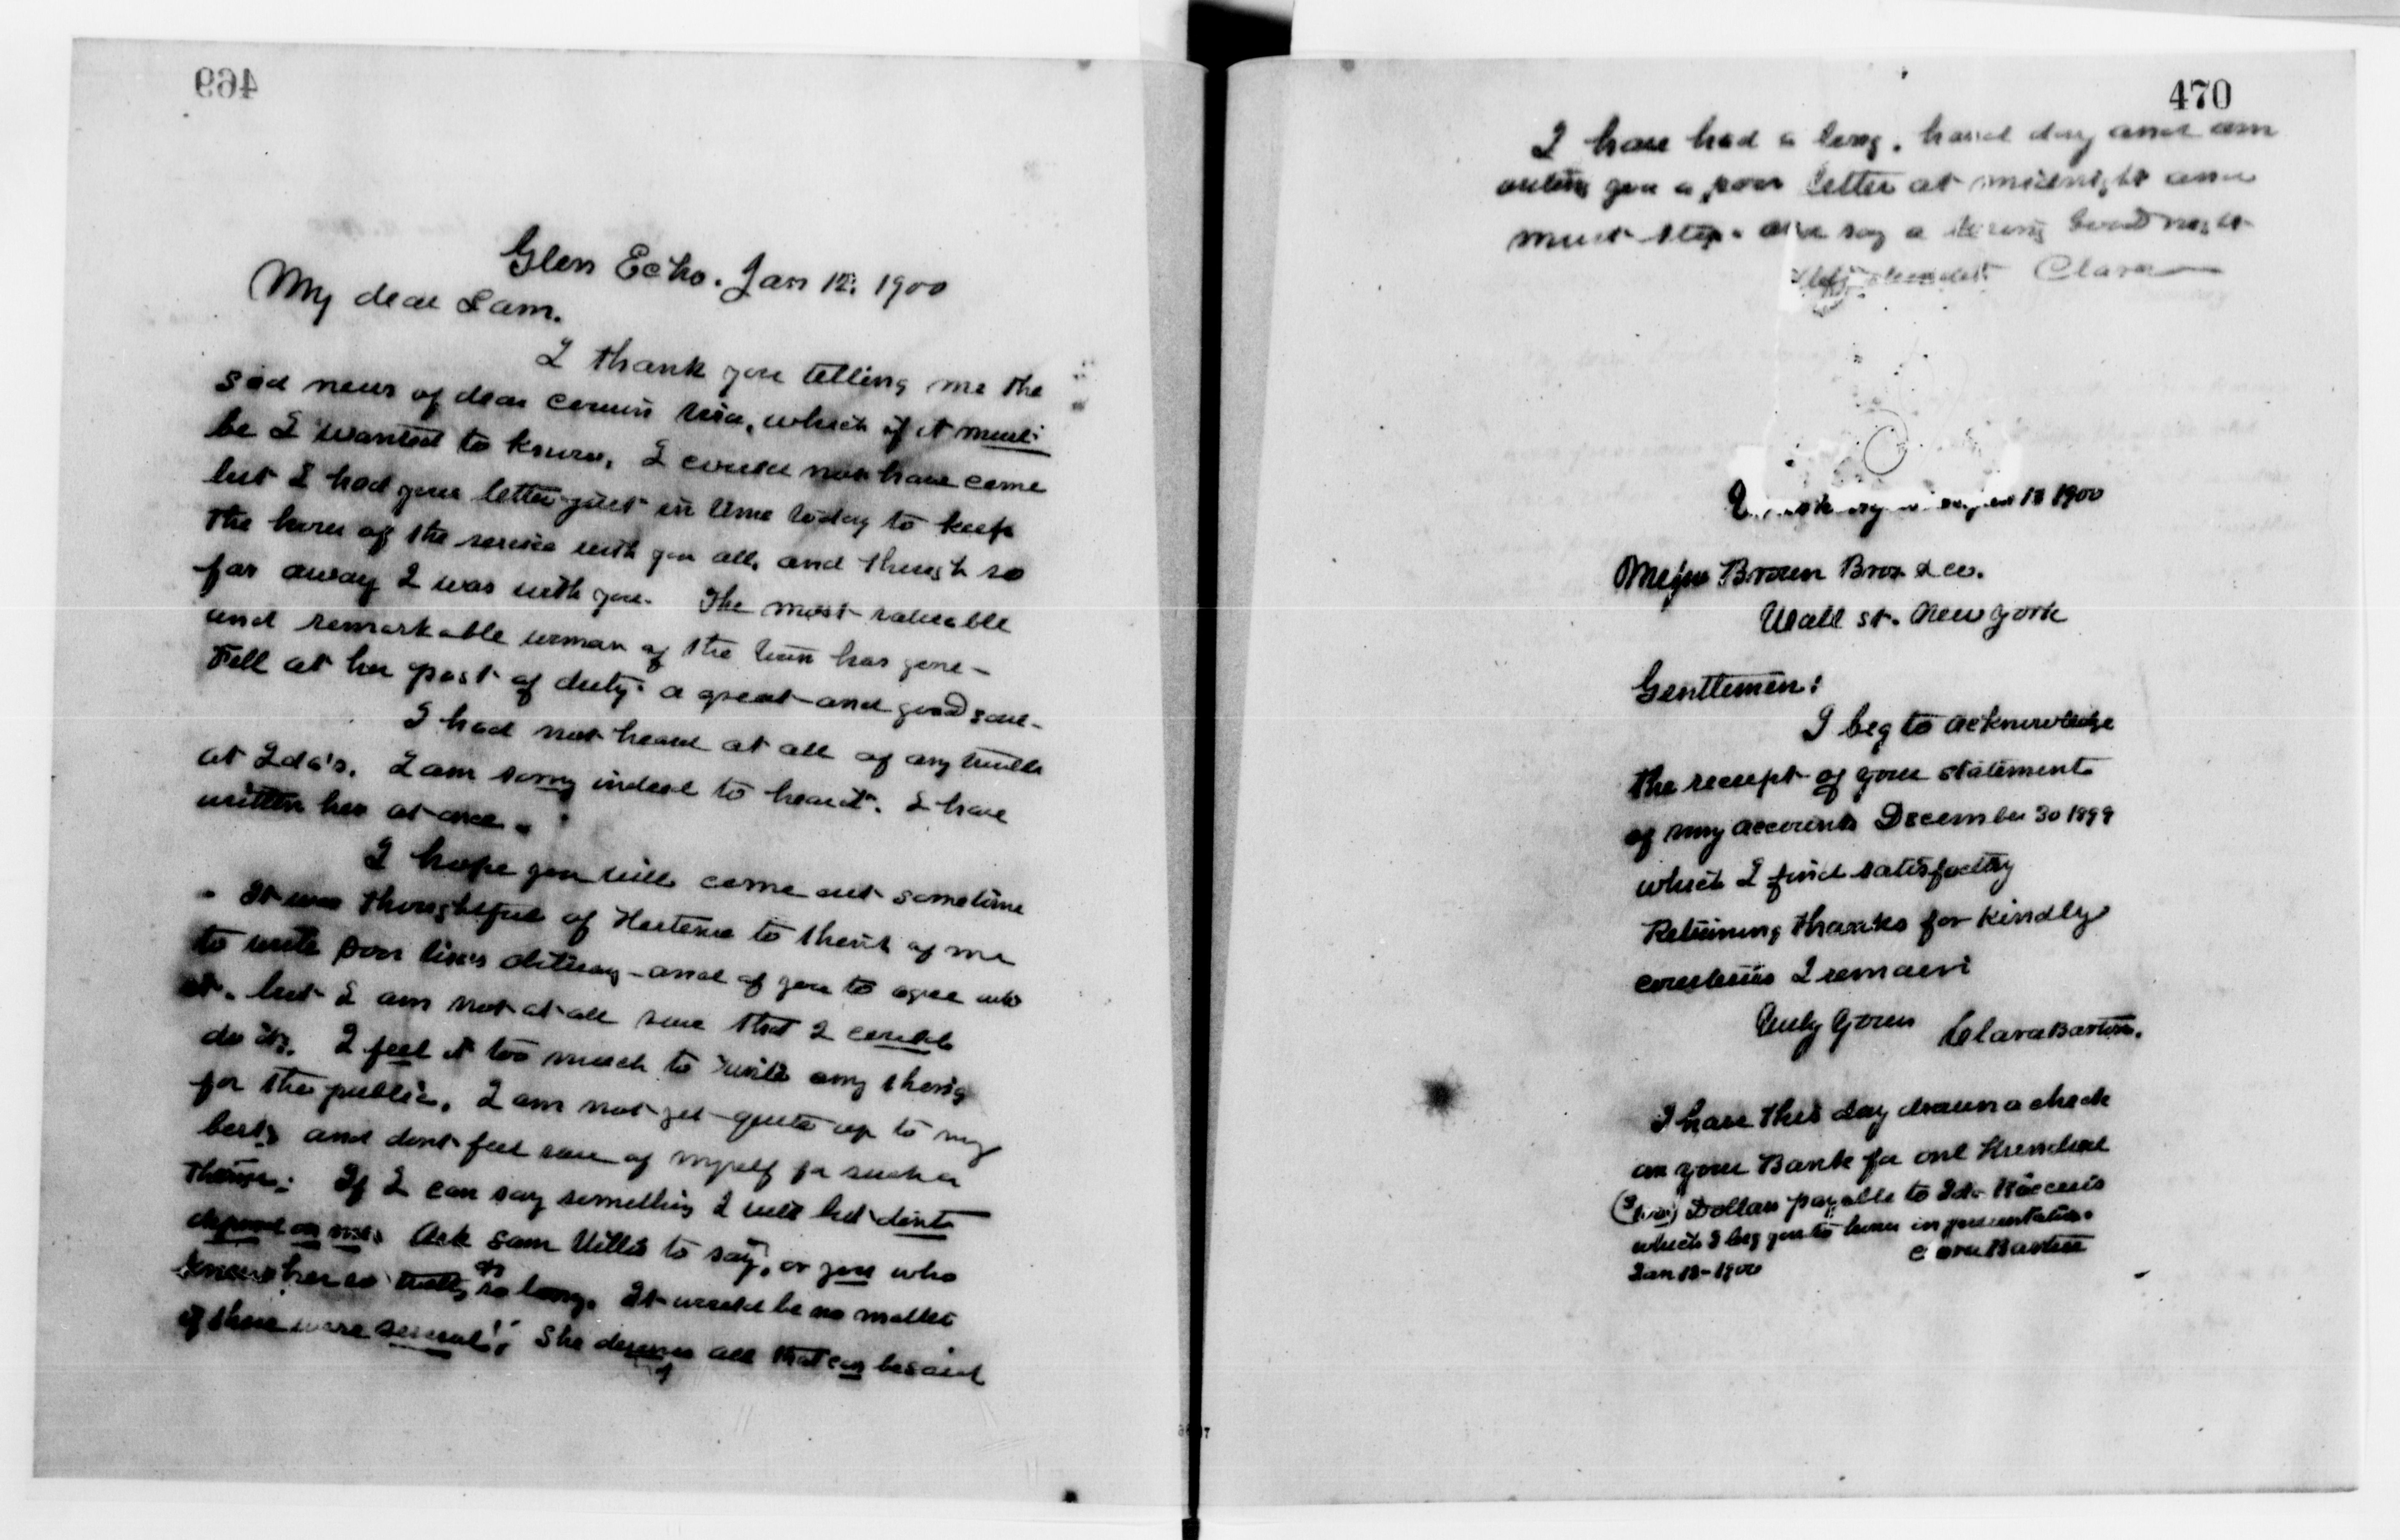 469
Glen Echo. Jan 12, 1900
My dear Sam.
I thank you telling me the
sad news of dear cousin Liza, which if it must
be I wanted to know, I could not have come
but I had your letter just in time today to keep
the hour of the service with you all, and though so
far away I was with you. The most valuable
and remarkable woman of the town has gone -
Fell at her post of duty. a great and good soul -
I had not heard at all of any trouble
at Ida's. I am sorry indeed to hear it. I have
written her at once.
I hope you will come out sometime
It was thoughtful of Hortense to think of me
to write poor Liza's obituary - and of you to agree with
it. but I am not at all sure that I could
do it. I feel it too much to write any thing
for the public. I am not yet quite up to my
best, and dont feel sure of myself for such a
thing. If I can say something I will but dont
depend on me. Ask Sam Willis to say, or you who
knew her so so long. It would be no matter
if there were several. She deserves all that can be said
470
I have had a long, hard day and am
writing you a poor letter at midnight and
must stop. and say a loving Good night
Clara
18 1900
Brown Bros & co.
Wall st. New york
Gentlemen:
I beg to acknowledge
the receipt of your statement
of my accounts December 30 1899
which I find satisfactory
Returning thanks for kindly
courtesies I remain
Truly Yours Clara Barton.
I have this day drawn a check
on your Bank for one Hundred
Dollars payable to Ida Riccius
which I beg you to honor in presentation.
Clara Barton
Jan 18 - 1900